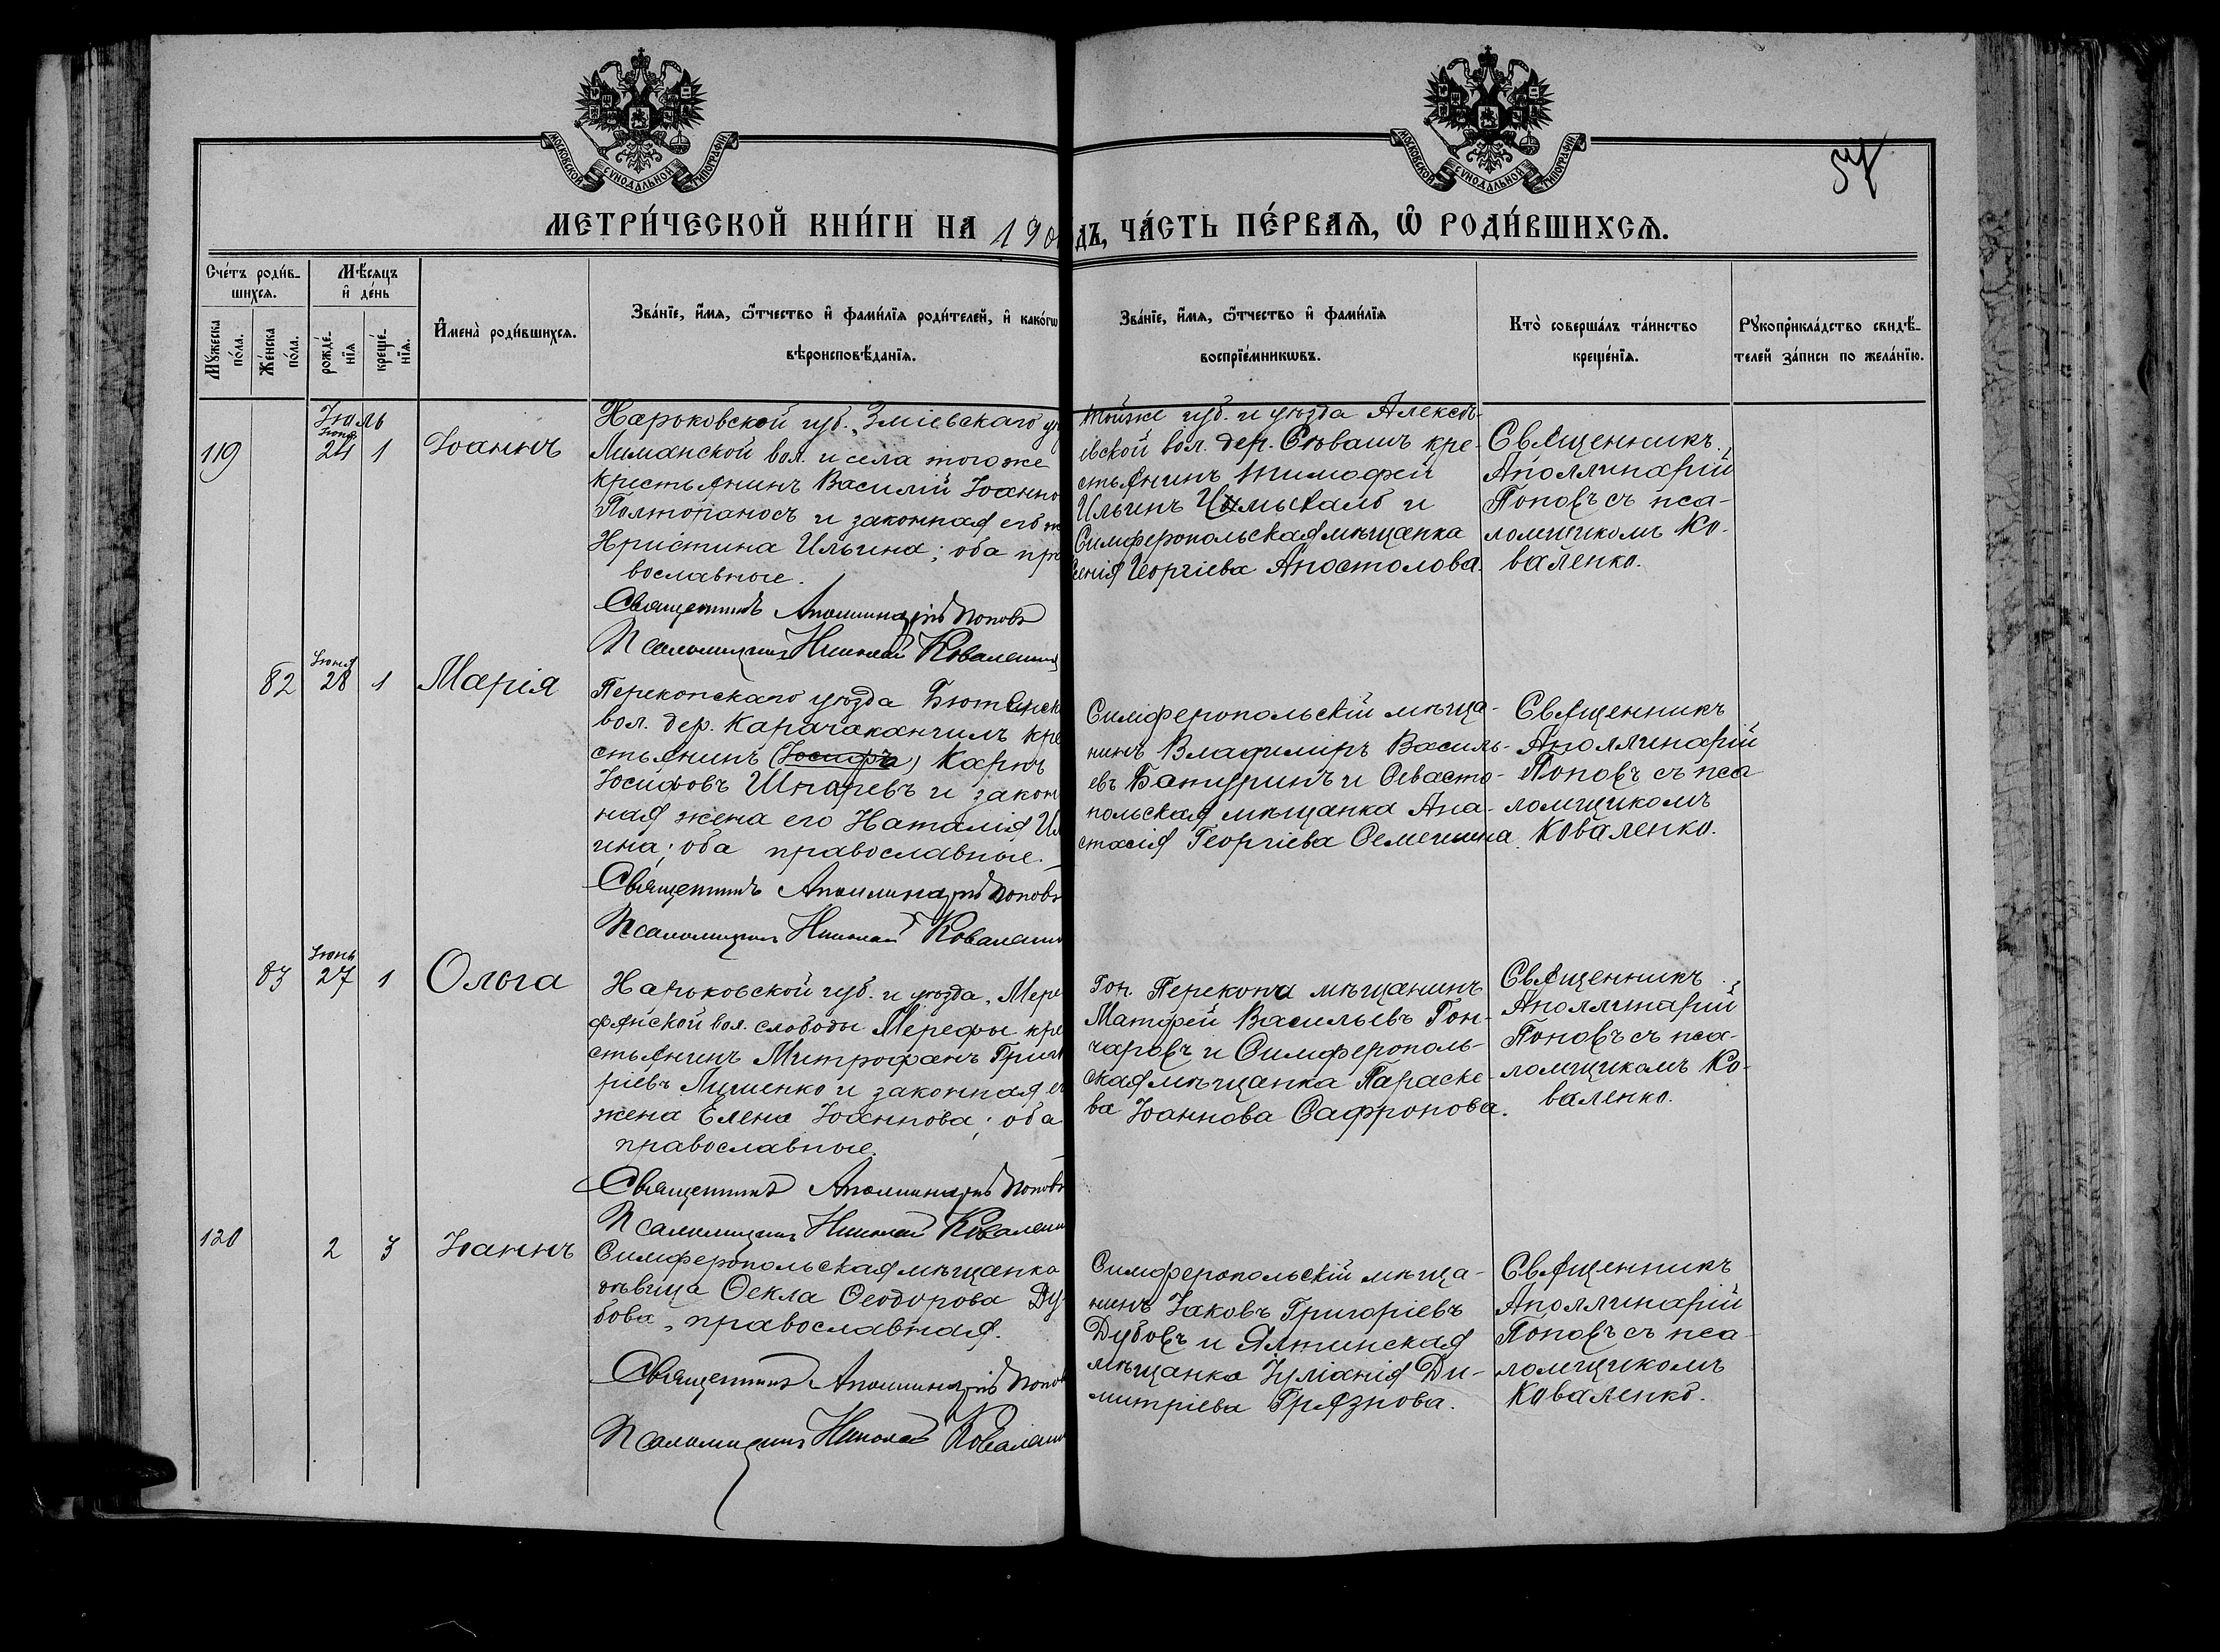 МОСКОВСКОЙ СУНОДАЛЬНОЙ ТИПОГРАФІИ
МОСКОВСКОЙ СУНОДАЛЬНОЙ ТИПОГРАФІИ
МЕТРИ́ЧЕСКОЙ КНИ́ГИ НА 190
ДЪ, ЧА́СТЬ ПЕ́РВАѦ, Ѡ РОДИ́ВШИХСѦ.
Сче́тъ роди́в-
шихсѧ.
Мѣ́сяцъ
и де́нь
Мꙋ́жеска
по́ла.
Же́нска
по́ла.
рожде́-
нїѧ
креще́-
нїѧ.
Имена̀ роди́вшихсѧ.
Зва́нїе, и́мѧ, ѿтчество и фами́лїѧ роди́телей, и како́гѡ
вѣроисповѣ́данїѧ.
Зва́нїе, и́мѧ, ѿтчество и фами́лїѧ
воспрїе́мникѡвъ.
Кто̀ соверша́лъ та́инство
креще́нїѧ.
Рꙋкоприкла́дство свидѣ́-
телей за́писи по жела́нїю.
Іюль
119
Іюня
24
1
Іоаннъ
Харьковской губ., Зміевскаго уѣ
Лиманской вол. и села тогоже
крестьянинъ Василій Іоанно
Полтопаносъ и законная его ж
Христина Ильина; оба пра
вославные.
Священникъ Аполлинарій Поповъ
Псаломщикъ Николай Коваленко
тойже губ. и уѣзда Алексѣ-
евской вол. дер. Сивашъ кре-
стьянинъ Тимофей
Ильинъ и
Симферопольская мѣщанка
Георгіева Апостолова.
Священникъ
Аполлинарій
Поповъ съ пса-
ломщикомъ Ко-
валенко.
82
Іюня
28
1
Марія
Перекопскаго уѣзда
вол. дер. Карачаканчилъ кре
стьянинъ (Іосифъ) Карпъ
Іосифовъ Шпаревъ и закон
ная жена его Наталія Иль
ина; оба православные.
Священникъ Аполлинарій Поповъ
Псаломщикъ Николай Коваленко
Симферопольскій мѣща-
нинъ Владиміръ Василь-
евъ Батуринъ и Севасто-
польская мѣщанка Ана-
стасія Георгіева Семенина.
Священникъ
Аполлинарій
Поповъ съ пса
ломщикомъ
Коваленко.
83
Іюнь
27
1
Ольга
Харьковской губ. и уѣзда, Мере
фянской вол. слободы Мерефы кре
стьянинъ Митрофанъ Григо
ріевъ Лишенко и законная е
жена Елена Іоаннова; оба
православные.
Священникъ Аполлинарій Поповъ
Псаломщикъ Николай Коваленко
Гор. Перекопа мѣщанинъ
Матфей Васильевъ Гон-
чаровъ и Симферополь-
ская мѣщанка Параске-
ва Іоаннова Сафронова.
Священникъ
Аполлинарій
Поповъ съ пса-
ломщикомъ Ко-
валенко.
120
2
3
Іоаннъ
Симферопольская мѣщанка
дѣвица Ѳекла Ѳеодорова Ду-
бова, православная.
Священникъ Аполлинарій Поповъ
Псаломщикъ Николай Коваленко
Симферопольскій мѣща-
нинъ Іаковъ Григоріевъ
Дубовъ и Ялтинская
мѣщанка Іуліанія Ди-
митріева Грязнова.
Священникъ
Аполлинарій
Поповъ съ пса
ломщикомъ
Коваленко.